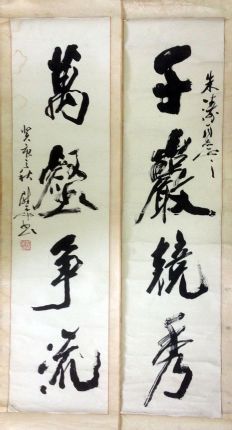 朱濤同志
千巖競秀
萬壑争流
癸亥之秋